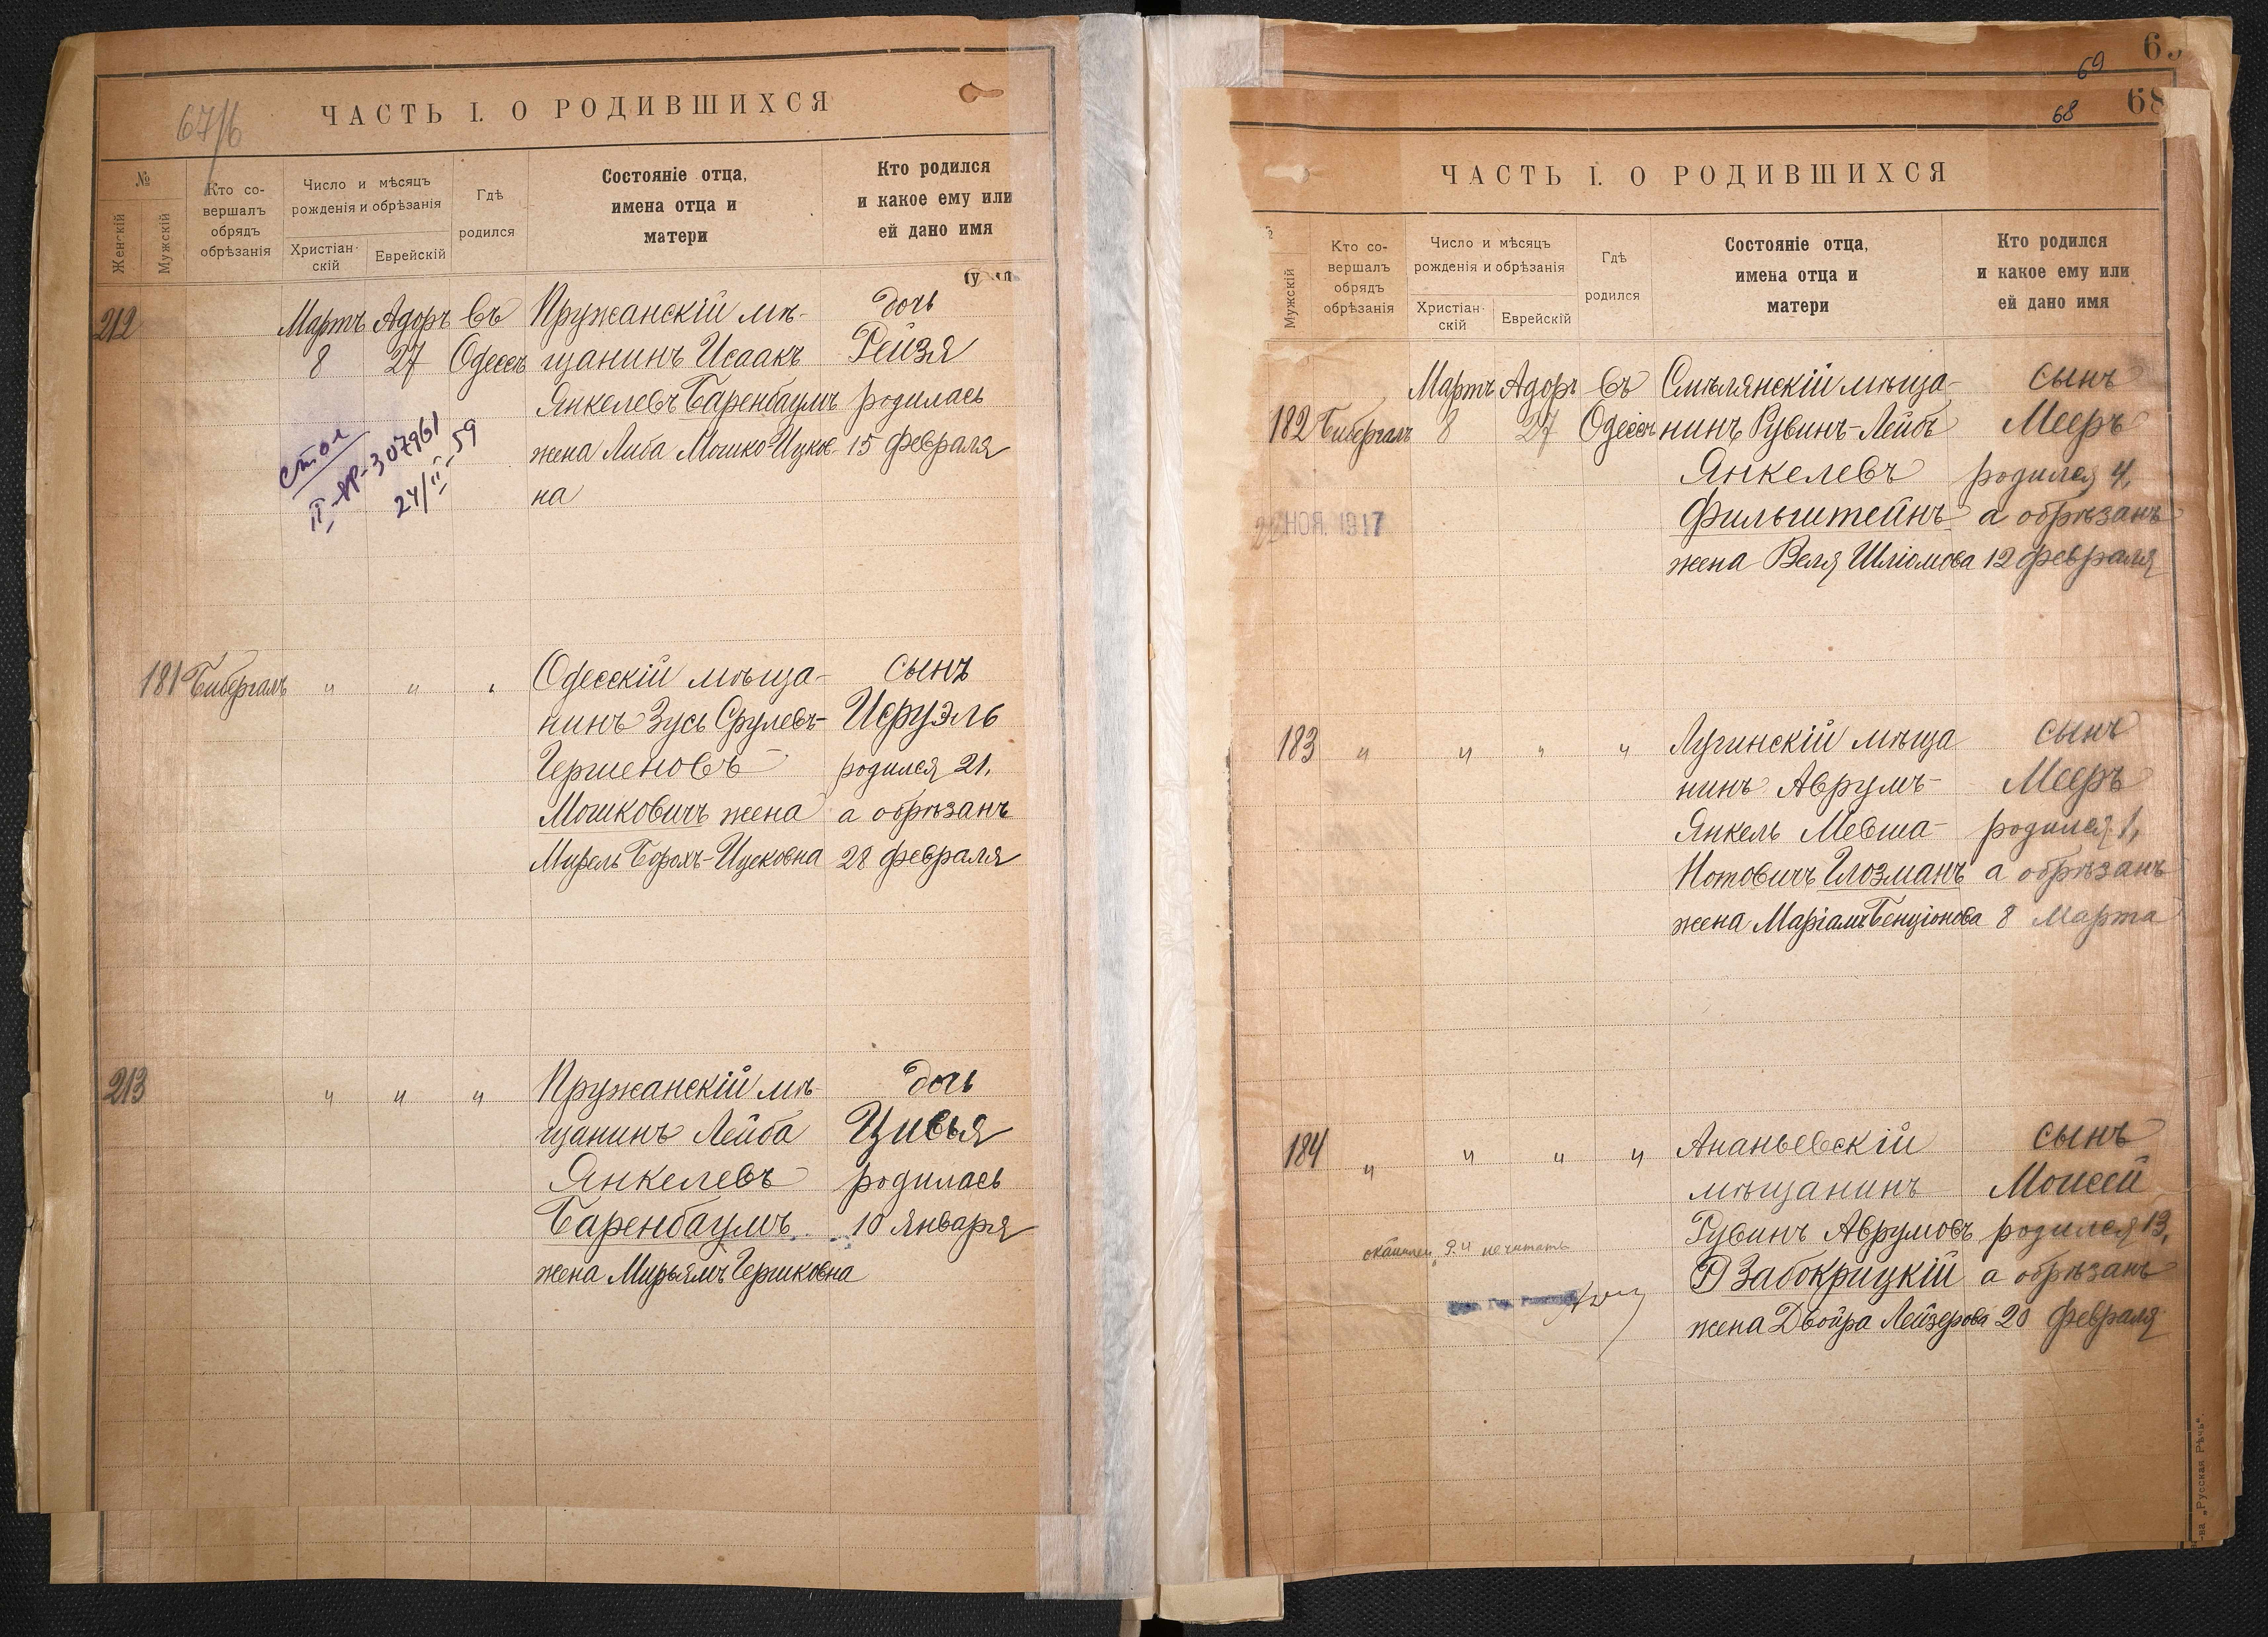 67/б
ЧАСТЬ I. О РОДИВШИХСЯ
№
Женскій
Мужскій
Кто со-
вершалъ
обрядъ
обрѣзанія
Число и мѣсяцъ
рожденія и обрѣзанія
Христіан-
скій
Еврейскій
Гдѣ
родился
Состояніе отца,
имена отца и
матери
Кто родился
и какое ему или
ей дано имя
212 Мартъ Адоръ Въ Пружанскій мѣ- дочь
8 27 Одессѣ щанинъ Исаакъ Рейзя
Янкелевъ Баренбаумъ родилась
жена Либа Мошко-Ицков- 15 февраля
на
стол
II-ЯР-307961
24/II-59
181 Бибергалъ " " " Одесскій мѣща- сынъ
нинъ Зусь Срулевъ- Исруэль
Гершеновъ родился 21,
Мошковичъ жена а обрѣзанъ
Мирель Борохъ-Ицковна 28 февраля
213 " " " Пружанскій мѣ- дочь
щанинъ Лейба Цивья
Янкелевъ родилась
Баренбаумъ 10 января
жена Мирьямъ Гершковна
69
68 68
ЧАСТЬ I. О РОДИВШИХСЯ
Мужскій
Кто со-
вершалъ
обрядъ
обрѣзанія
Число и мѣсяцъ
рожденія и обрѣзанія
Христіан-
скій
Еврейскій
Гдѣ
родился
Состояніе отца,
имена отца и
матери
Кто родился
и какое ему или
ей дано имя
Мартъ Адоръ Въ Смѣлянскій мѣща- сынъ
182 Бибергалъ 8 27 Одессѣ нинъ Рувинъ-Лейбъ Мееръ
Янкелевъ родился 4,
НОЯ. 1917 Фильштейнъ а обрѣзанъ
жена Веля Шліомова 12 февраля
183 " " " " Лугинскій мѣща сынъ
нинъ Аврумъ- Мееръ
Янкель Мевша- родился 1,
Нотовичъ Глозманъ а обрѣзанъ
жена Маріамъ Бенціонова 8 Марта
184 " " " " Ананьевскій сынъ
мѣщанинъ Моисей
Рувинъ Аврумовъ родился 13,
Забокрицкій а обрѣзанъ
жена Двойра Лейзерова 20 февраля
не читать
-ва „Русская Рѣчь“.